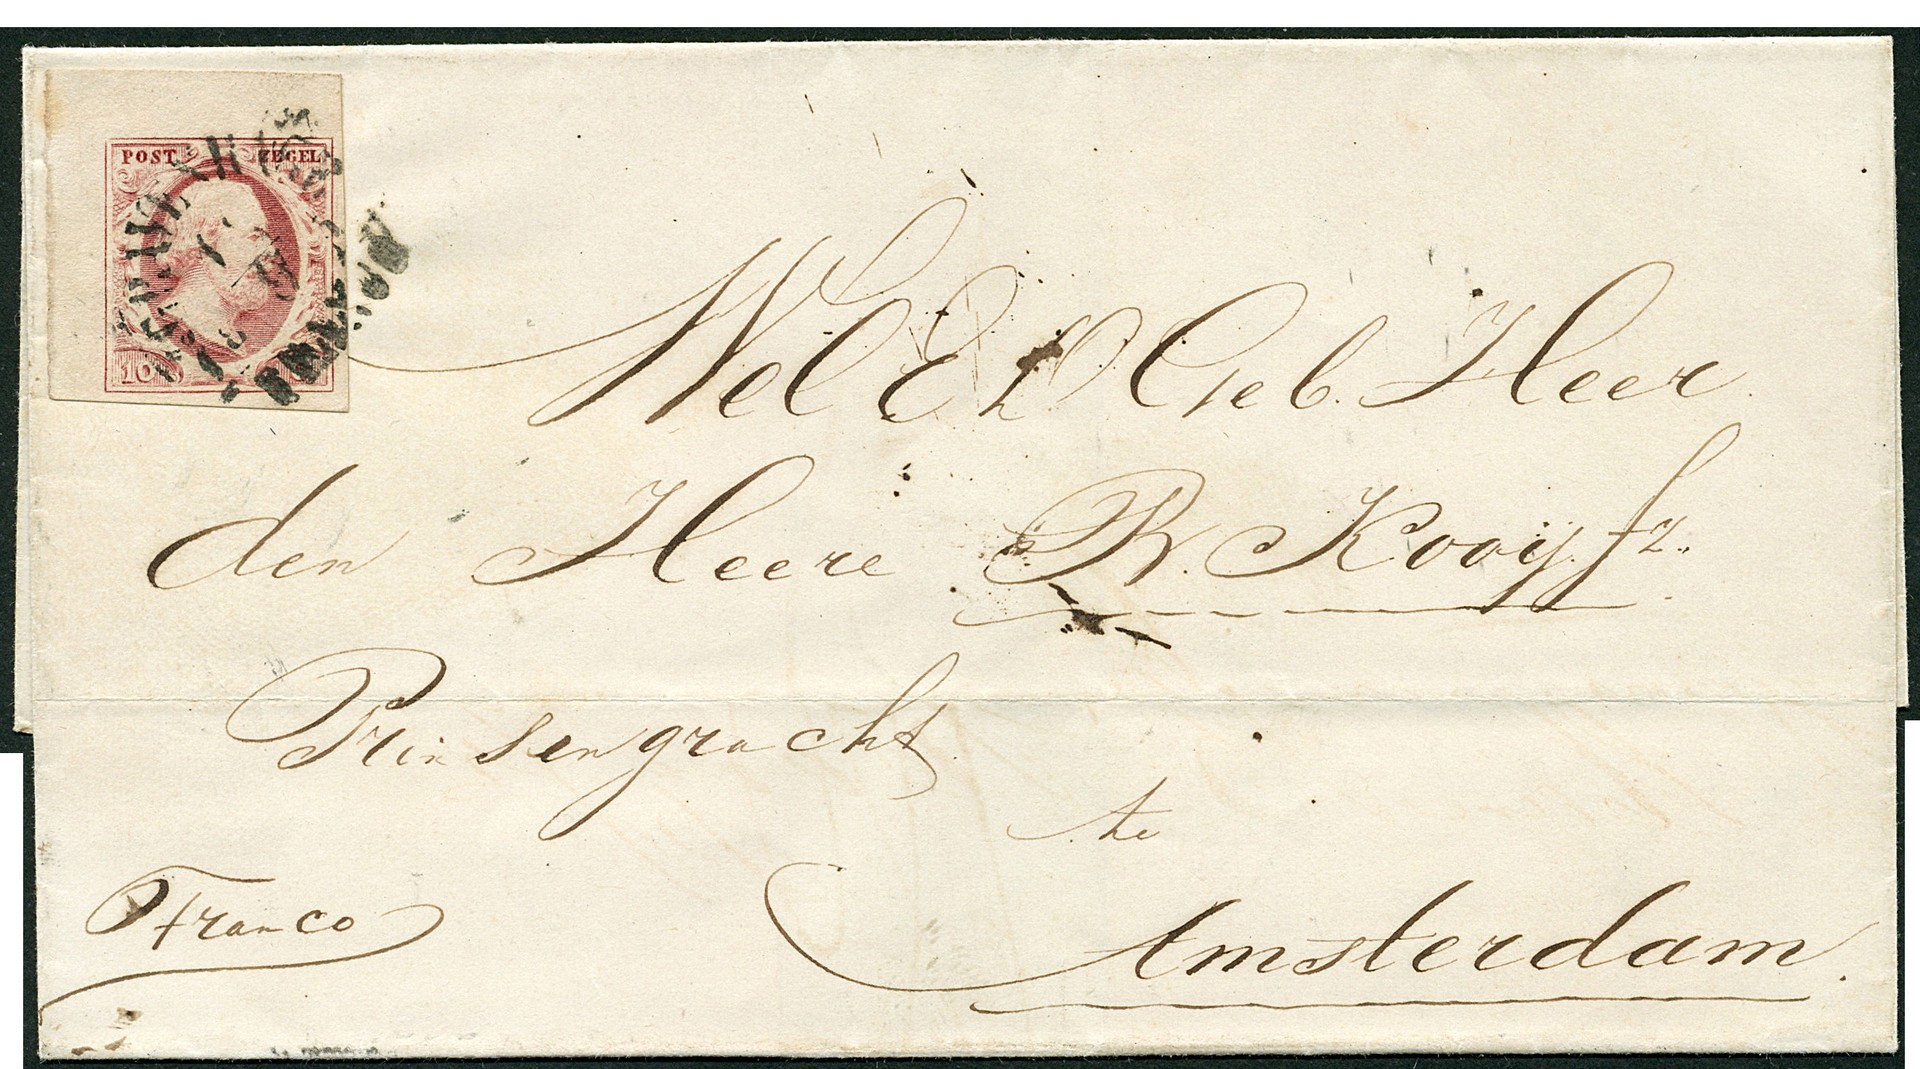 POST ZEGEL
10
Wel Ed Geb. Heer
den Heere R. Kooy fz.
Prinsengracht
te
Amsterdam.
Franco